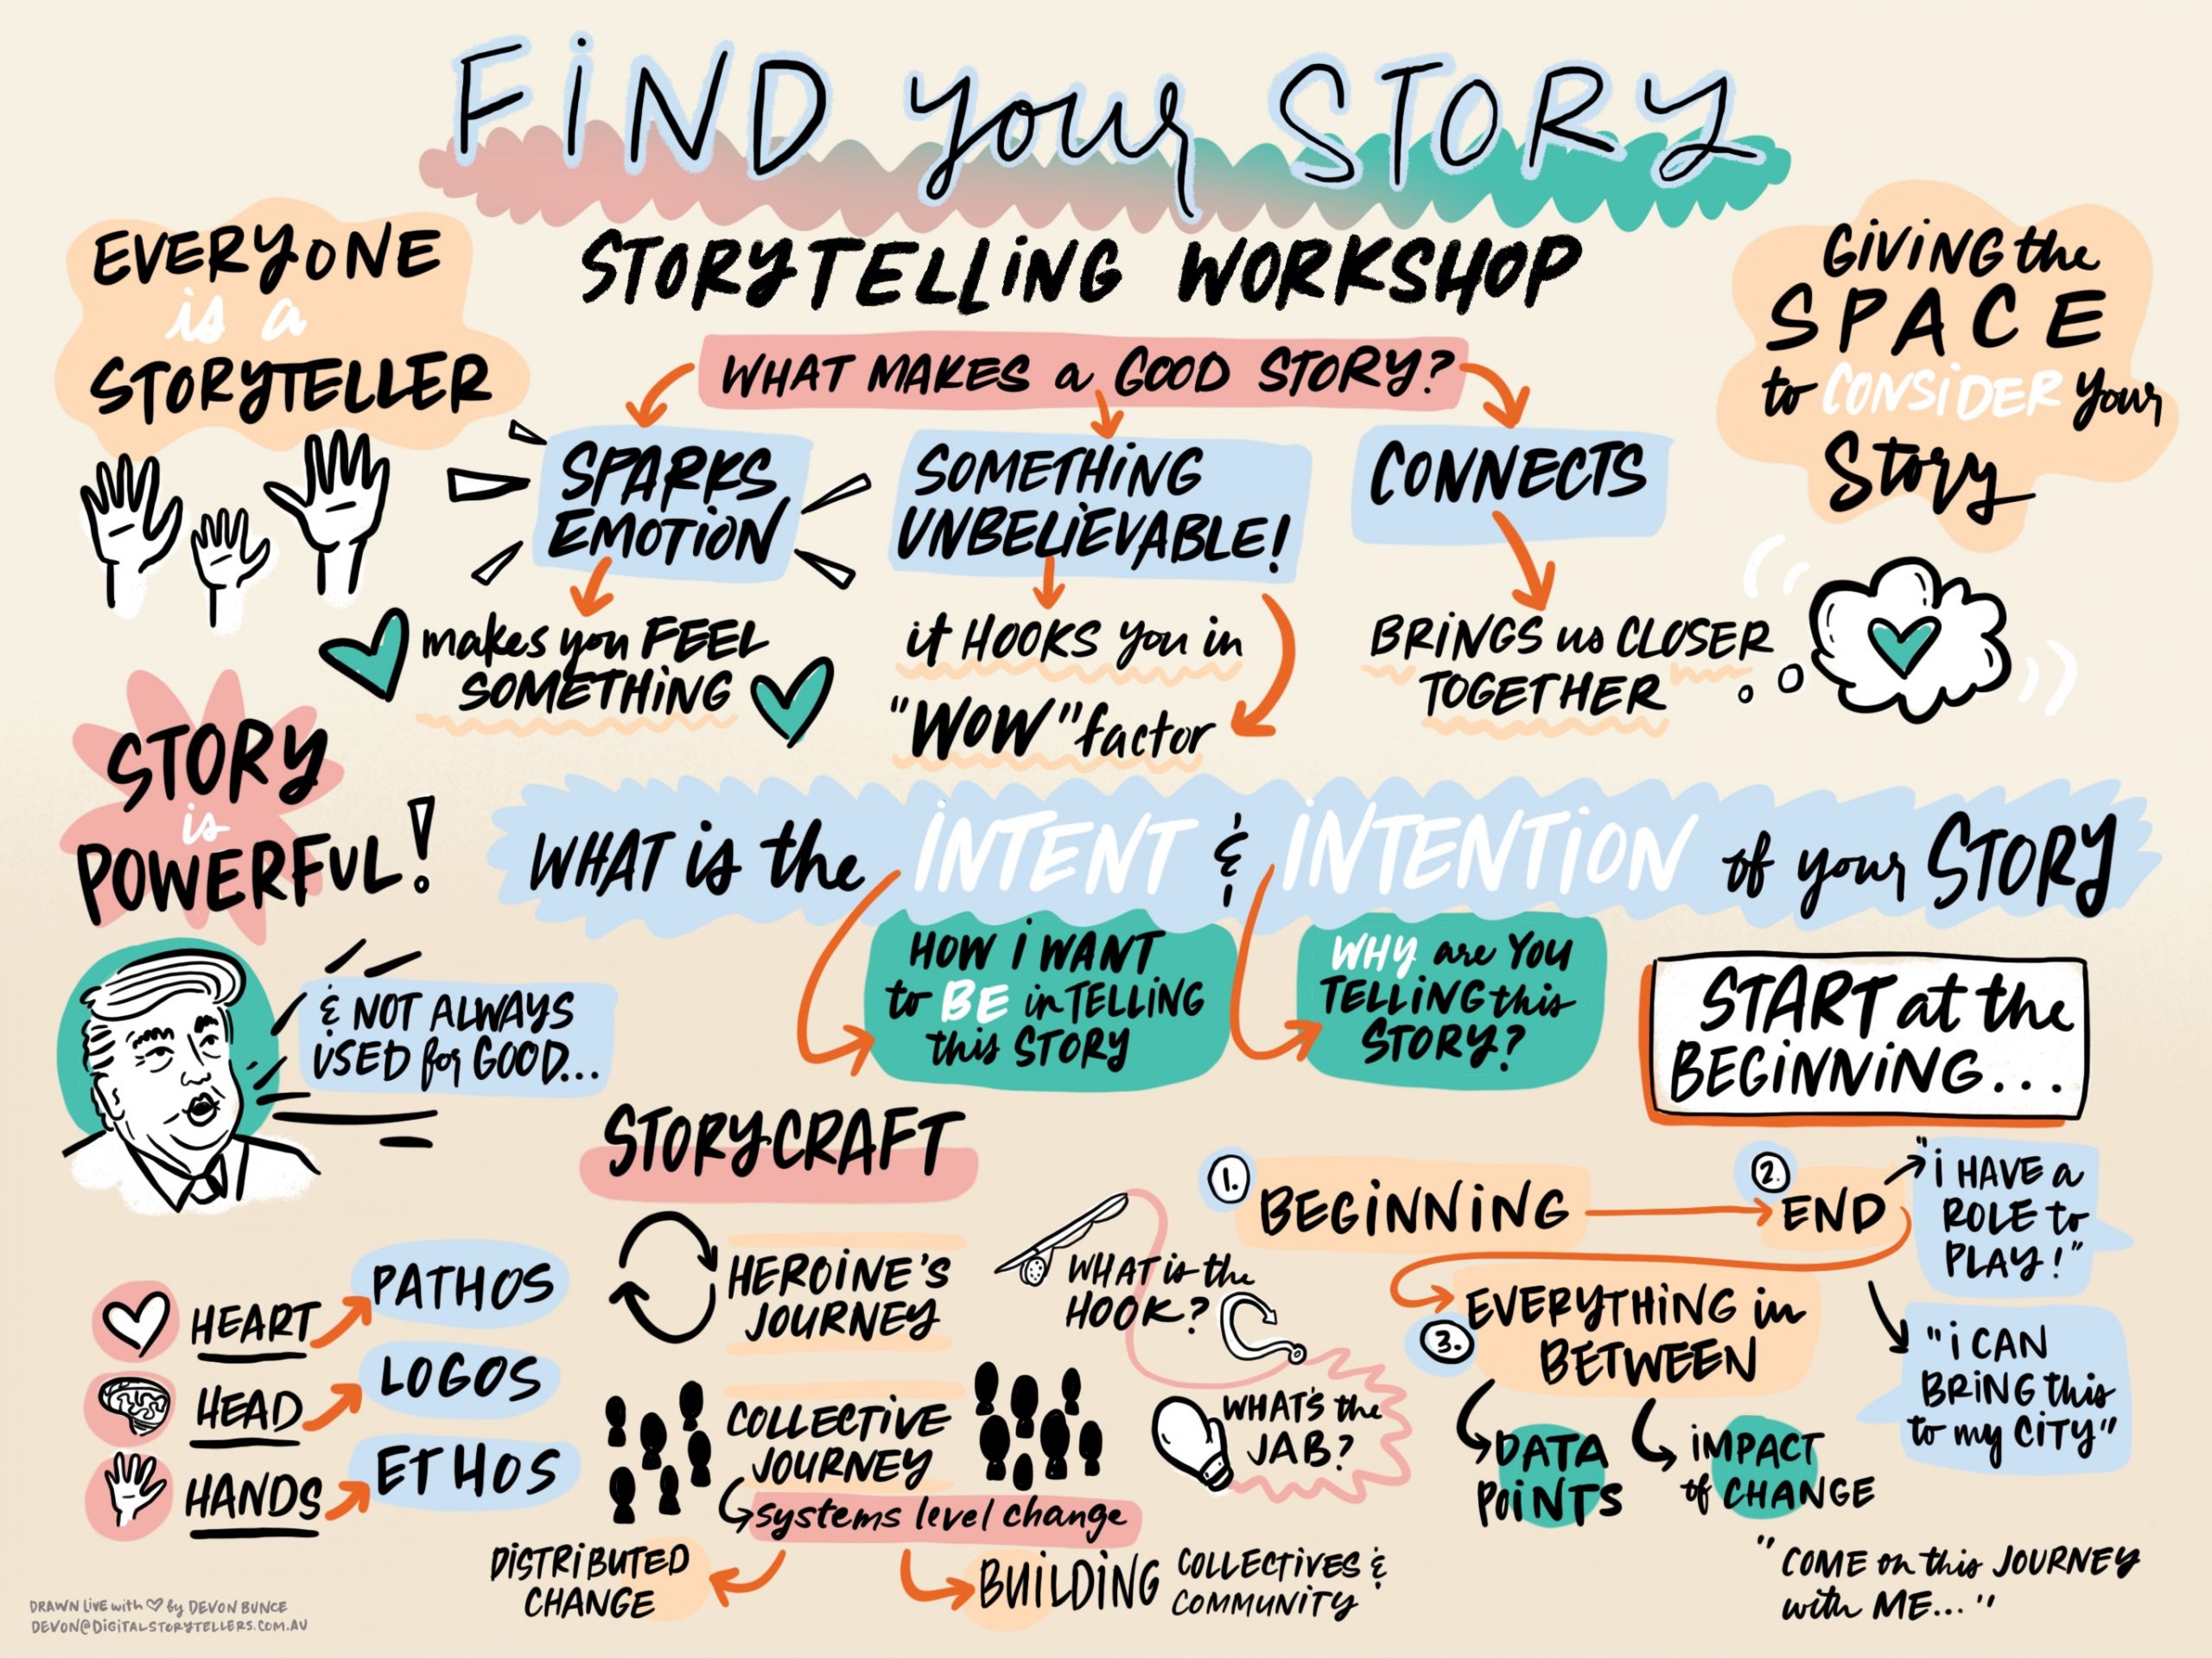 FiND your STORY
STORYTELLiNG WORKSHOP
EVERYONE
is a
STORYTELLER
WHAT MAKES a GOOD STORY?
SPARKS
EMOTiON
makes you FEEL
SOMETHiNG
SOMETHiNG
UNBELiEVABLE!
it HOOKS you in
"WOW" factor
CONNECTS
BRiNGS us CLOSER
TOGETHER
GiViNG the
SPACE
to CONSiDER your
Story
STORY
is
POWERFUL!
& NOT ALWAYS
USED for GOOD...
WHAT is the iNTENT & iNTENTiON of your STORY
HOW i WANT
to BE in TELLiNG
this STORY
WHY are YOU
TELLiNG this
STORY?
START at the
BEGiNNiNG...
HEART
PATHOS
HEAD
LOGOS
HANDS
ETHOS
STORYCRAFT
HEROiNE'S
JOURNEY
COLLECTiVE
JOURNEY
systems level change
DiSTRiBUTED
CHANGE
BUiLDiNG COLLECTiVES &
COMMUNiTY
WHAT is the
HOOK?
WHAT'S the
JAB?
1. BEGiNNiNG
2. END
"i HAVE a
ROLE to
PLAY!"
"i CAN
BRiNG this
to my CiTY"
3. EVERYTHiNG in
BETWEEN
DATA
POiNTS
iMPACT
of CHANGE
"COME on this JOURNEY
with ME..."
DRAWN LiVE with ♡ by DEVON BUNCE
DEVON@DiGiTALSTORYTELLERS.COM.AU